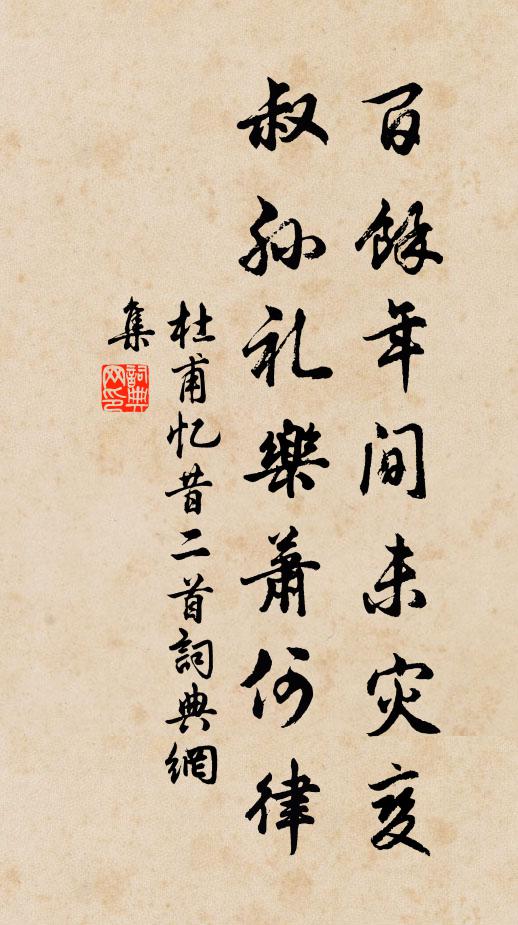 百餘年間未灾变
叔孙礼樂萧何律
杜甫忆昔二首詞典網
集
詞典网印